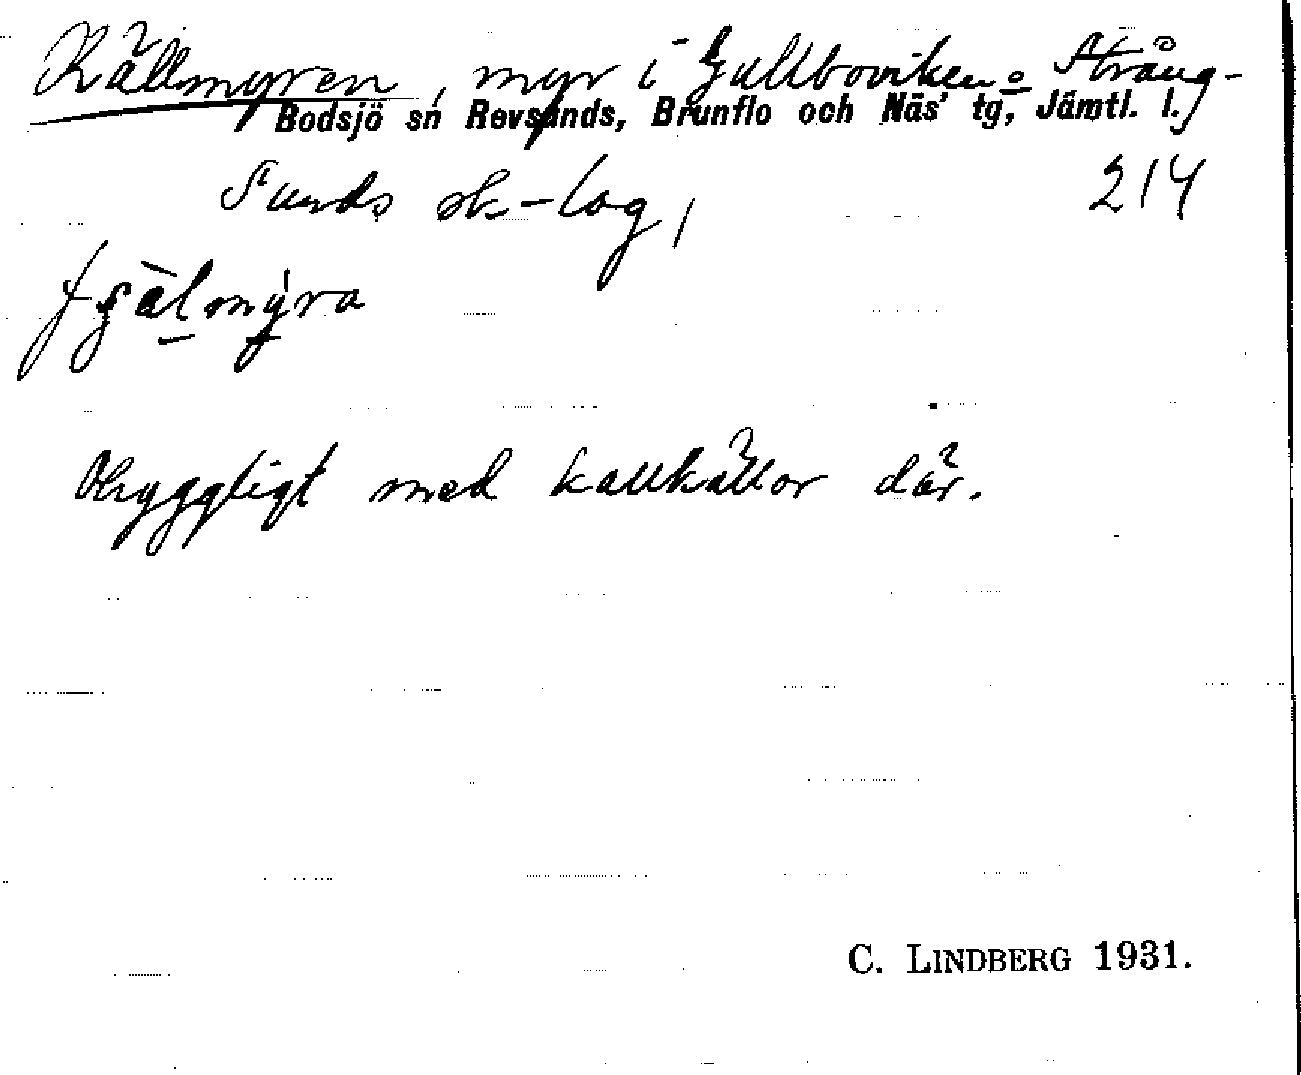 Källmyren, myr i Gullboviken o Strång-
Bodsjö sn Revsunds, Brunflo och Näs' tg, Jämtl. l.
sunds sk-lag, 214
Ohyggligt med kallkällor där.
C. LINDBERG 1931.